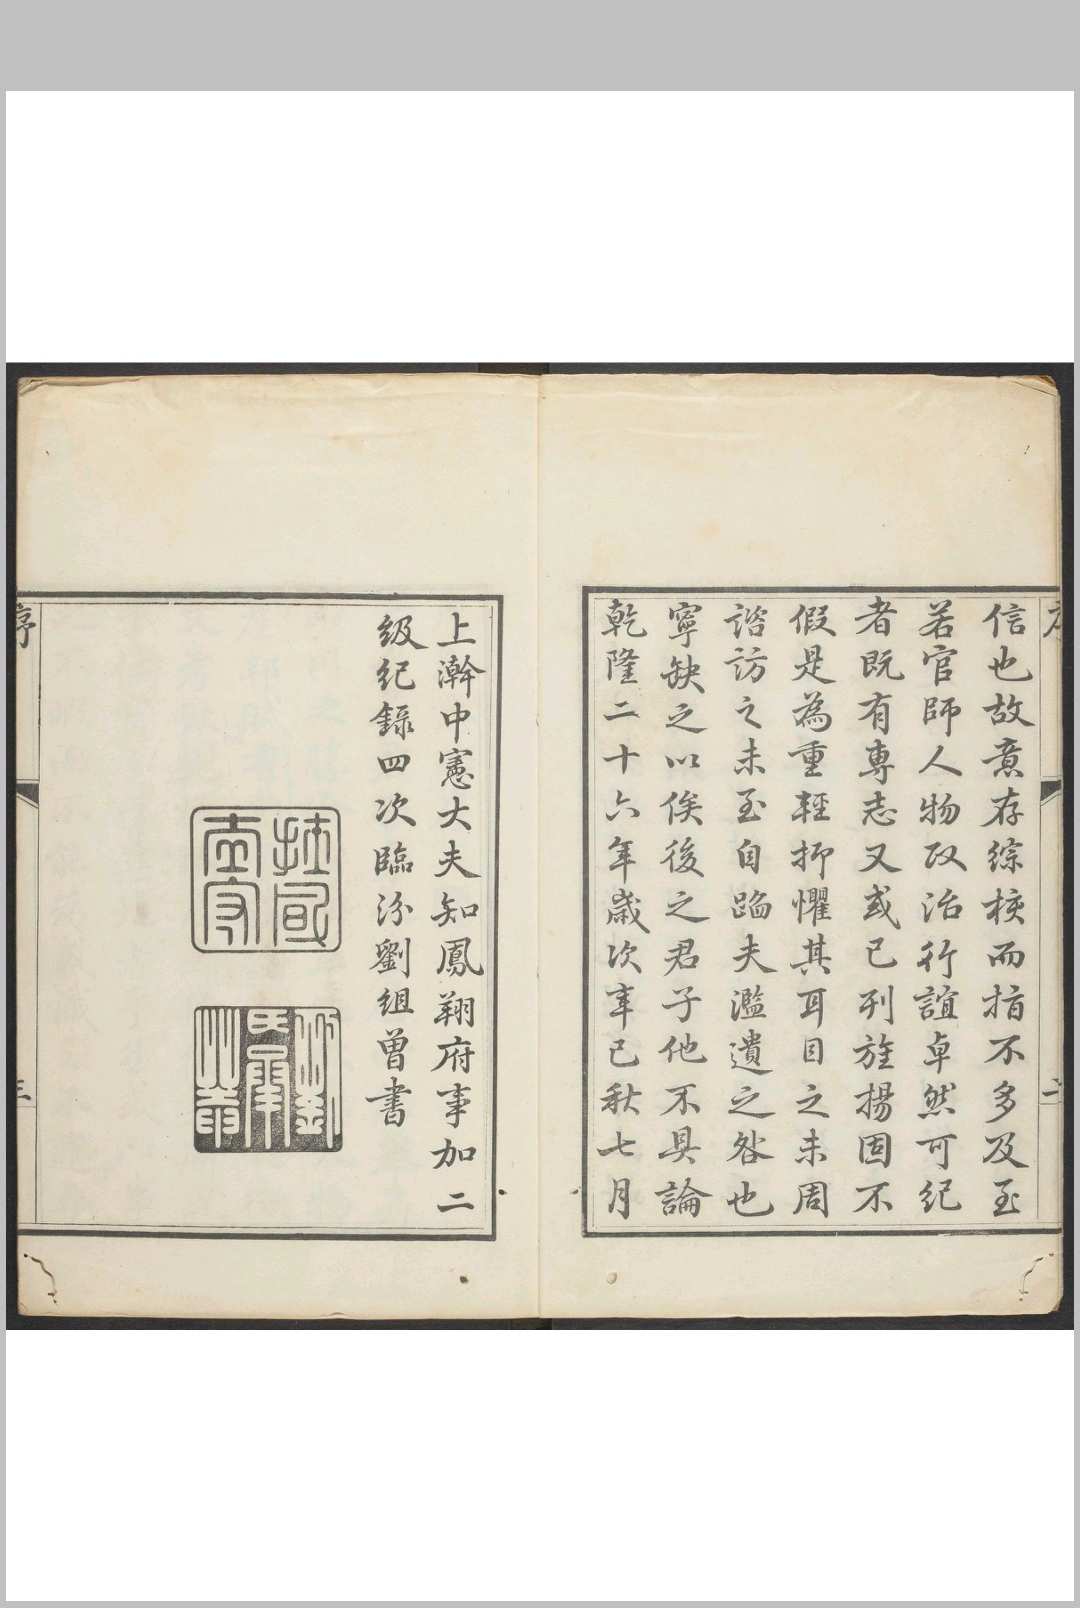 信也故意存綜核而指不多及至
若官師人物政治行誼卓然可紀
者既有專志又或已刊旌揚固不
假是為重輕抑懼其耳目之未周
諮訪之未至自蹈夫濫遺之咎也
寧缺之以俟後之君子他不具論
乾隆二十六年歲次辛巳秋七月
上澣中憲大夫知鳳翔府事加二
級紀錄四次臨汾劉組曾書
序
三